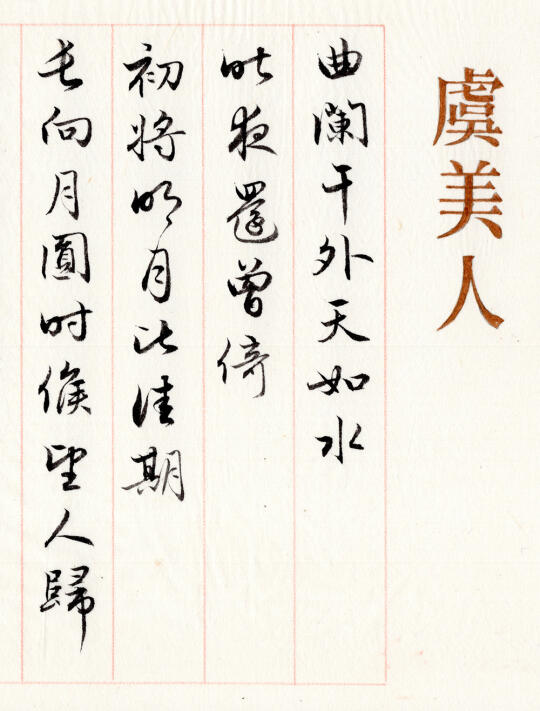 虞美人
曲闌干外天如水
昨夜還曾倚
初將明月比佳期
長向月圓时候望人歸